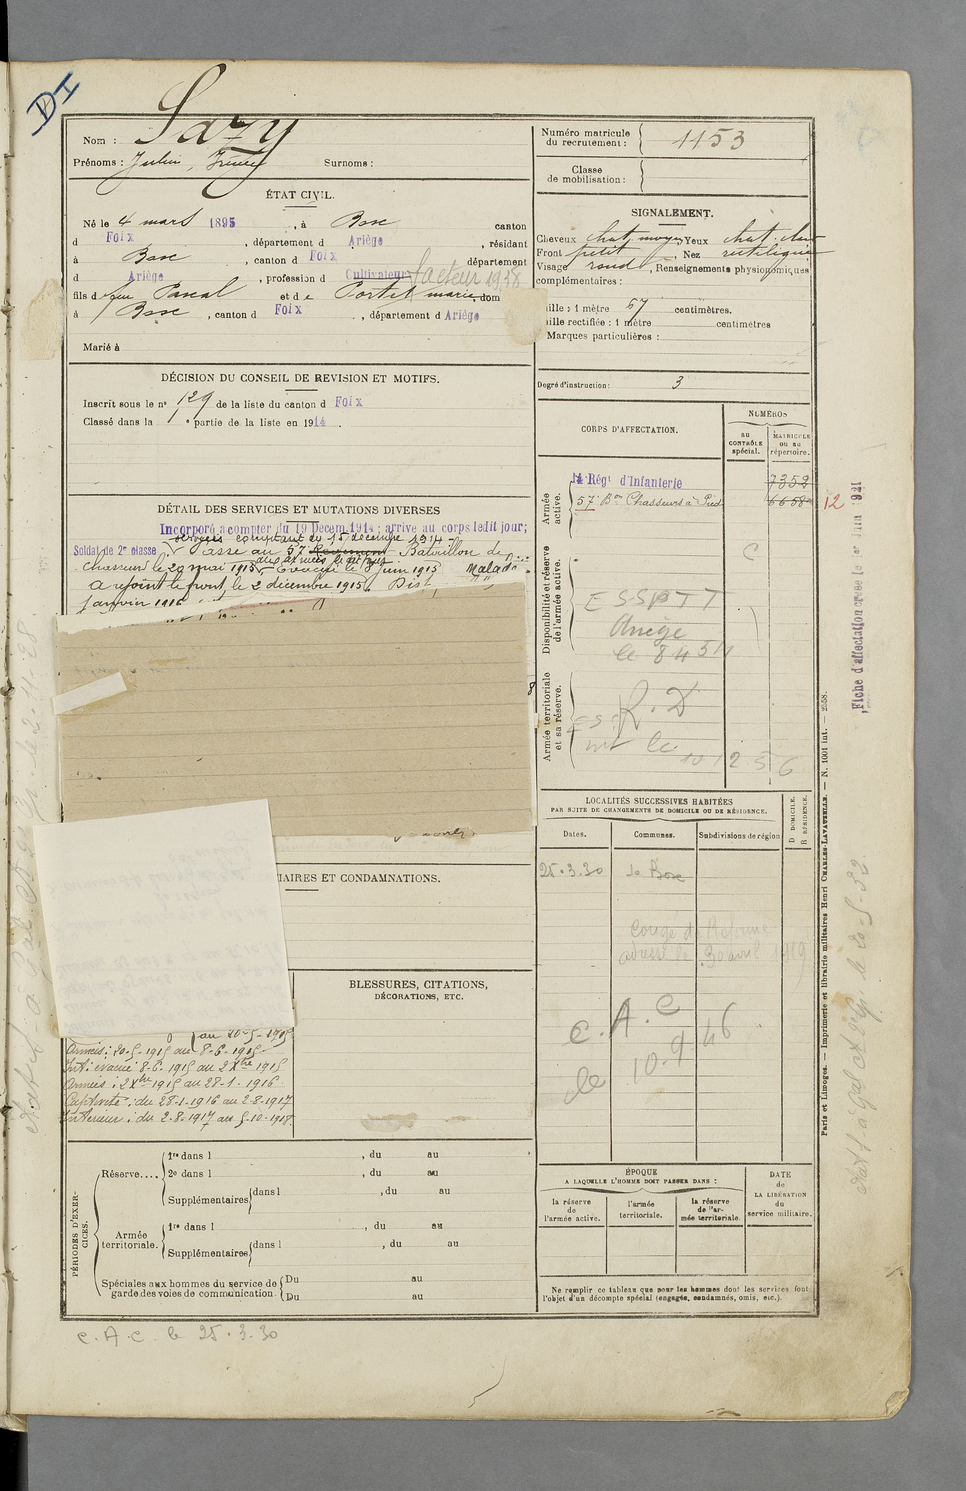 DI
Nom : Sazy
Prénoms : Julien,
Surnoms :
ÉTAT CIVIL.
Né le 4 mars 1895, à Bosc canton
d Foix, département d Ariège, résidant
à Bosc, canton d Foix département
d Ariège, profession d Cultivateur facteur 1938
fils d feu Pascal et de Portet marie, dom
à Bosc, canton d Foix, département d Ariège
Marié à
DÉCISION DU CONSEIL DE REVISION ET MOTIFS.
Inscrit sous le n° 129 de la liste du canton d Foix
Classé dans la 1° partie de la liste en 1914.
DÉTAIL DES SERVICES ET MUTATIONS DIVERSES
Incorporé à compter du 19 Décem. 1914; arrivé au corps ledit jour;
services comptant du 15 décembre 1914.
Soldat de 2e classe Passé au 57 Régiment Bataillon de
Chasseurs le 20 mai 1915 aux armées le dit jour Evacué le 8 juin 1915 Malade
A rejoint le front, le 2 décembre 1915.
janvier 1916
IAIRES ET CONDAMNATIONS.
BLESSURES, CITATIONS,
DÉCORATIONS, ETC.
au 20-5-1915
Armées: 20-5-1915 au 8-6-1915
Int: évacué 8-6-1915 au 2 Xbre 1915
Armées: 2 Xbre 1915 au 28-1-1916
Captivité: du 28-1-1916 au 2-8-1917
Intérieur: du 2-8-1917 au 5-10-1918
PÉRIODES D'EXERCICES.
Réserve....
1re dans l , du au
2e dans l , du au
Supplémentaires dans l , du au
Armée territoriale.
1re dans l , du au
Supplémentaires dans l , du au
Spéciales aux hommes du service de garde des voies de communication.
Du au
Du au
C.A.C. le 25.3.30
Numéro matricule
du recrutement : 1153
Classe
de mobilisation :
SIGNALEMENT.
Cheveux chat. moyen, Yeux chat. clair
Front petit, Nez rectiligne
Visage rond, Renseignements physionomiques
complémentaires :
ille : 1 mètre 67 centimètres.
ille rectifiée : 1 mètre centimètres
Marques particulières :
Degré d'instruction : 3
CORPS D'AFFECTATION.
NUMÉROS
AU CONTRÔLE spécial.
MATRICULE OU AU répertoire.
Armée active.
14 Régt d'Infanterie 7352
57 Bon Chasseurs à Pied 6658 12
Disponibilité et réserve de l'armée active.
C
ESSPTT
Ariège
le 8 4 51
Armée territoriale et sa réserve.
R.D
le
10 12 56
LOCALITÉS SUCCESSIVES HABITÉES
PAR SUITE DE CHANGEMENTS DE DOMICILE OU DE RÉSIDENCE.
Dates.
Communes.
Subdivisions de région
D DOMICILE.
R RÉSIDENCE.
25.3.30 Le Bosc
Congé de Réforme
adressé le 30 avril 1919
C.A.C
le 10.9.46
ÉPOQUE
A LAQUELLE L'HOMME DOIT PASSER DANS :
la réserve
de
l'armée active.
l'armée
territoriale.
la réserve
de l'armée territoriale.
DATE
de
LA LIBÉRATION
du
service militaire.
Ne remplir ce tableau que pour les hommes dont les services font
l'objet d'un décompte spécial (engagés, condamnés, omis, etc.).
Paris et Limoges. — Imprimerie et librairie militaires Henri CHARLES-LAVAUZELLE. — N. 1001 int. — 2558.
Fiche d'affectation créée le 1er Juin 1921